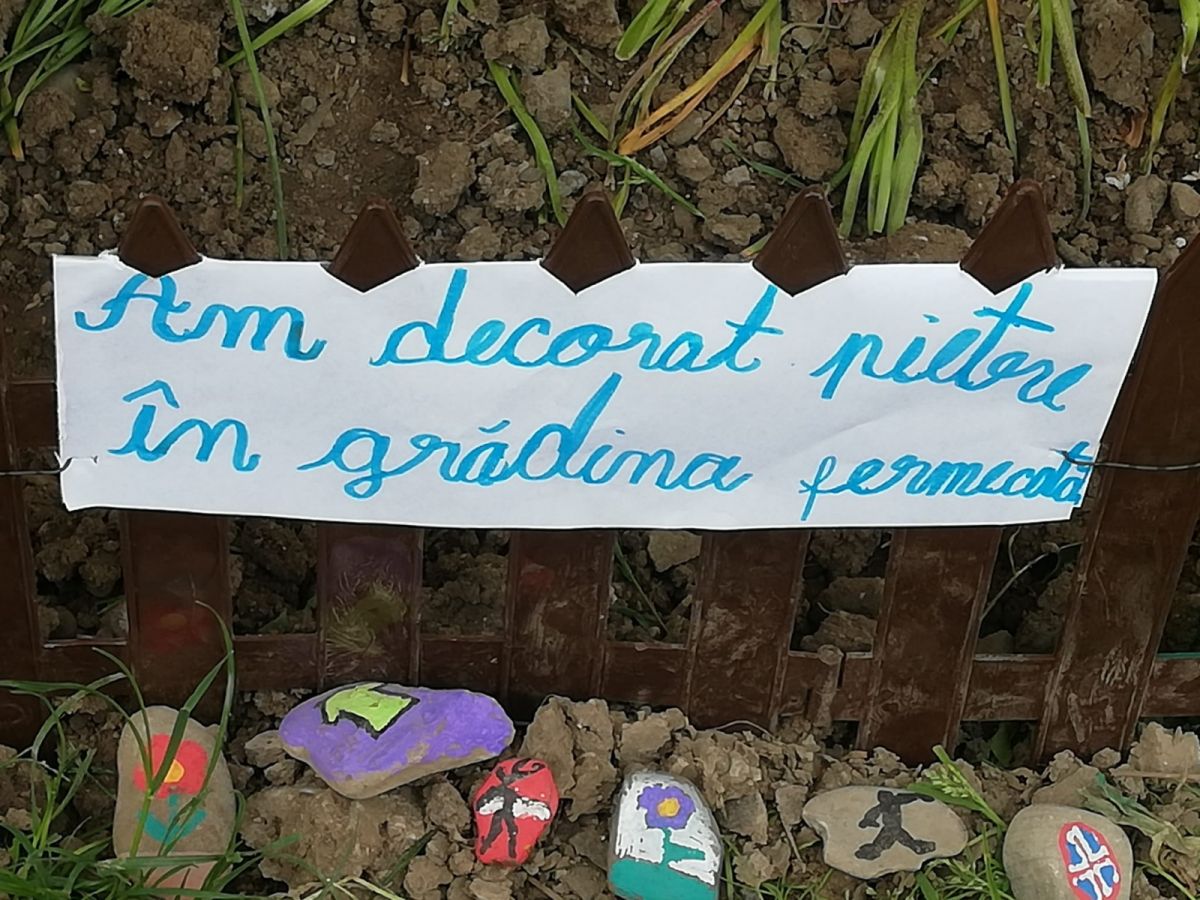 Am decorat pietre
în grădina fermecată